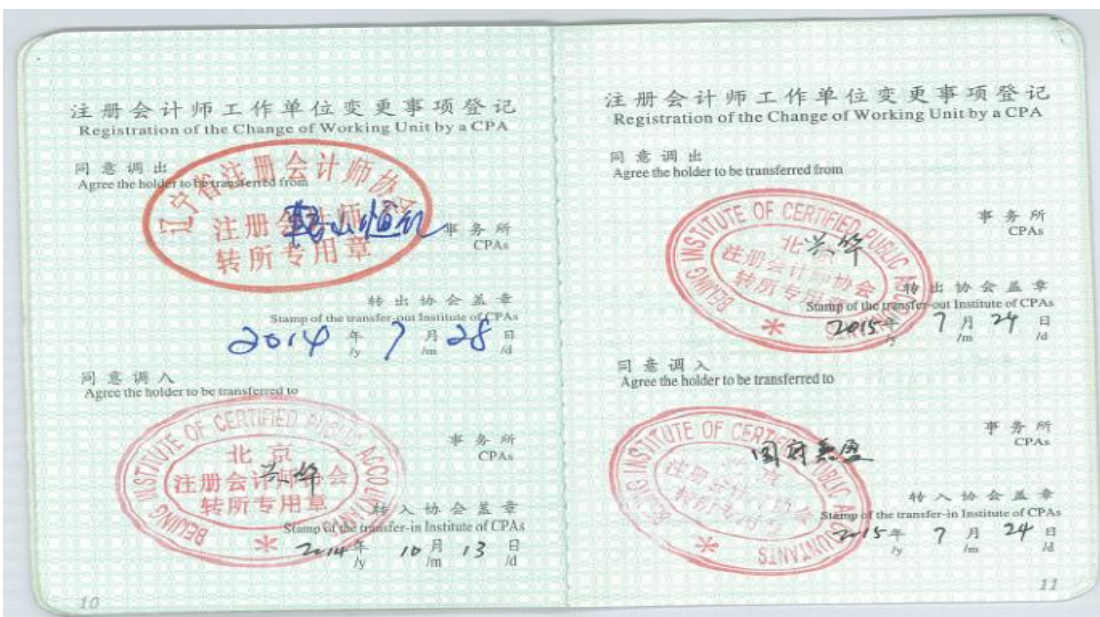 注册会计师工作单位变更事项登记
Registration of the Change of Working Unit by a CPA
同意调出
Agree the holder to be transferred from
辽宁省注册会计师协会
注册会计师
转所专用章
事务所
CPAs
转出协会盖章
Stamp of the transfer-out Institute of CPAs
2014年 7月28日
/y /m /d
同意调入
Agree the holder to be transferred to
BEIJING INSTITUTE OF CERTIFIED PUBLIC ACCOUNTANTS
北京
注册会计师协会
转所专用章
兴华
事务所
CPAs
转入协会盖章
Stamp of the transfer-in Institute of CPAs
2014年 10月 13日
/y /m /d
10
注册会计师工作单位变更事项登记
Registration of the Change of Working Unit by a CPA
同意调出
Agree the holder to be transferred from
BEIJING INSTITUTE OF CERTIFIED PUBLIC ACCOUNTANTS
北
兴华
注册会计师协会
转所专用章
事务所
CPAs
转出协会盖章
Stamp of the transfer-out Institute of CPAs
2015年 7月 24日
/y /m /d
同意调入
Agree the holder to be transferred to
BEIJING INSTITUTE OF CERTIFIED PUBLIC ACCOUNTANTS
注册会计师协会
转所专用章
事务所
CPAs
转入协会盖章
Stamp of the transfer-in Institute of CPAs
2015年 7月 24日
/y /m /d
11